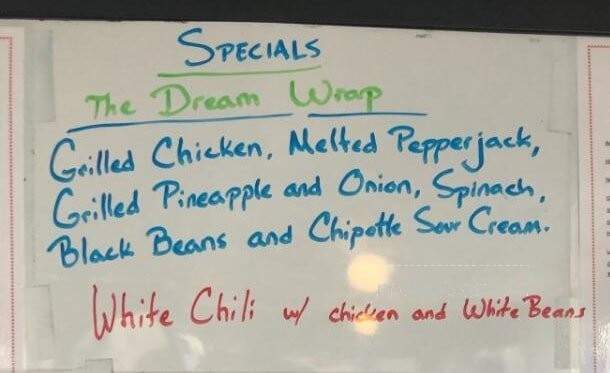 SPECIALS
The Dream Wrap
Grilled Chicken, Melted Pepperjack,
Grilled Pineapple and Onion, Spinach,
Black Beans and Chipotle Sour Cream.
White Chili w/ chicken and White Beans